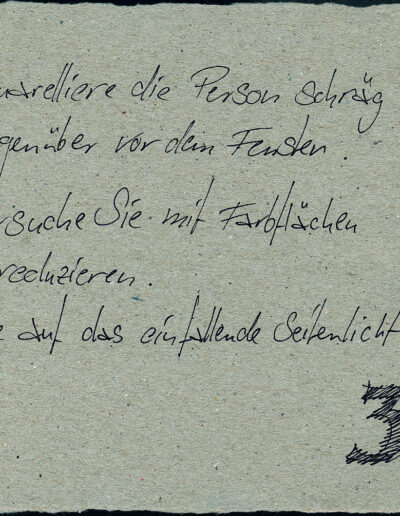 uarelliere die Person schräg
genüber vor dem Fenster.
rsuche Sie mit Farbflächen
reduzieren.
e auf das einfallende Seitenlicht
3